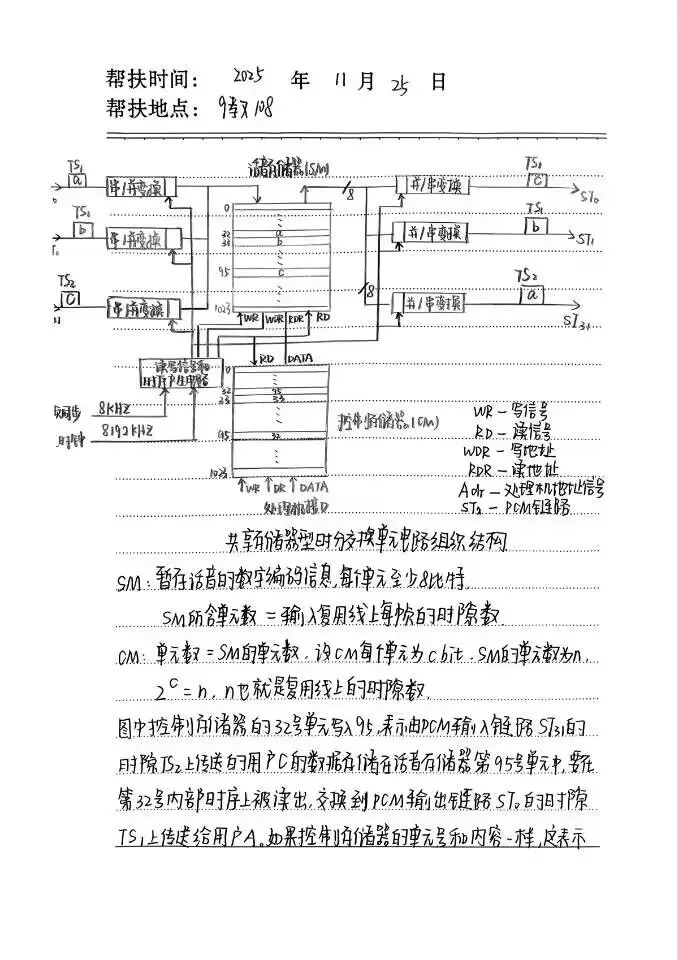 帮扶时间: 2025 年 11 月 25 日
帮扶地点: 9教X108
话音存储器(SM)
TS₁ a 串/并变换
TS₁ b 串/并变换
TS₂ c 串/并变换
0
32 a
33 b
95 c
1023
WR WDR RDR RD
8
8
并/串变换 TS₁ c ST₀
并/串变换 TS₁ b ST₁
并/串变换 TS₂ a ST₃₁
读写信号和
时序产生电路
8KHZ
时钟 8192KHZ
RD DATA
0
32 95
33 33
95 32
1023
控制存储器(CM)
WR DR DATA
处理机接口
WR - 写信号
RD - 读信号
WDR - 写地址
RDR - 读地址
Adr - 处理机地址信号
ST₀ - PCM链路
共享存储器型时分交换单元电路组织结构
SM: 暂存话音的数字编码信息,每单元至少8比特.
SM所含单元数 = 输入复用线上每帧的时隙数.
CM: 单元数 = SM的单元数. 设CM每个单元为c bit. SM的单元数为n.
2ᶜ = n, n也就是复用线上的时隙数.
图中控制存储器的32号单元写入95,表示由PCM输入链路ST₃₁的
时隙TS₂上传送的用户C的数据存储在话音存储器第95号单元中,要在
第32号内部时序上被读出,交换到PCM输出链路ST₀的时隙
TS₁上传送给用户A。如果控制存储器的单元号和内容一样,这表示